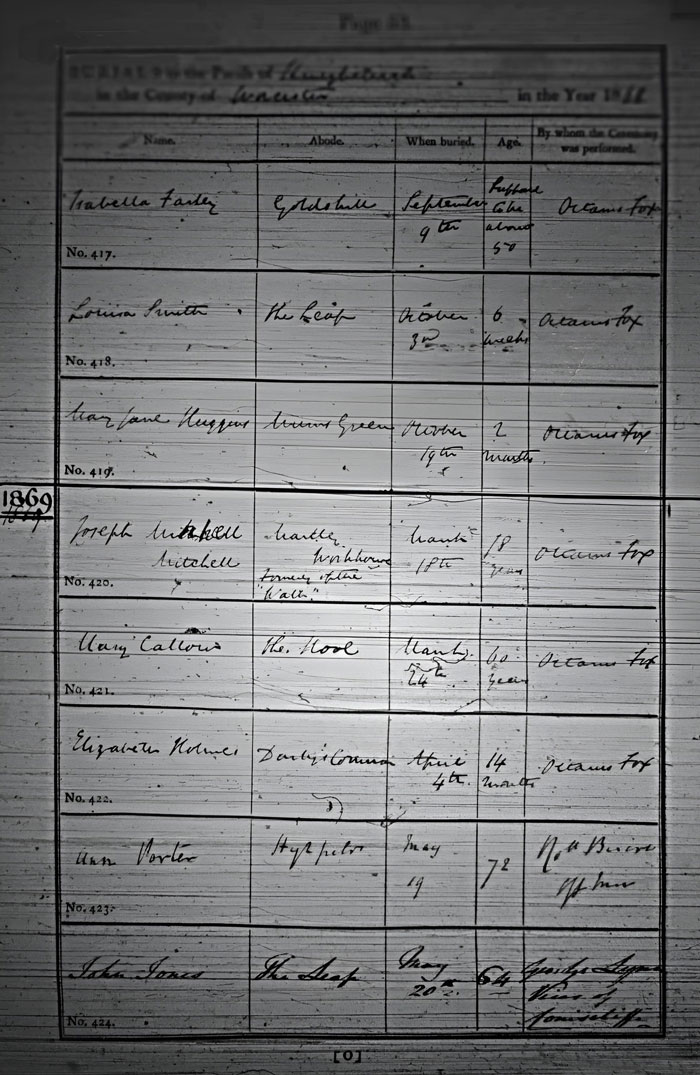 BURIALS in the Parish of
in the County of Worcester in the Year 18
Name. Abode. When buried. Age. By whom the Ceremony was performed.
Isabella Farley Goldshill September 9th about 50 Octavius Fox
No. 417.
Louisa Smith the Leap October 3rd 6 weeks Octavius Fox
No. 418.
Mary Jane Huggins Green October 19th 2 months Octavius Fox
No. 419.
1869
Joseph Mitchell Martley Workhouse March 18th 78 years Octavius Fox
Mitchell formerly of the
No. 420. "Walls."
Mary Callow the March 24th 60 years Octavius Fox
No. 421.
Elizabeth Holmes Darby's Common April 4th 14 months Octavius Fox
No. 422.
Ann Porter May 19 72
No. 423.
John Jones The Leap May 20th 64 Vicar of
No. 424.
[0]